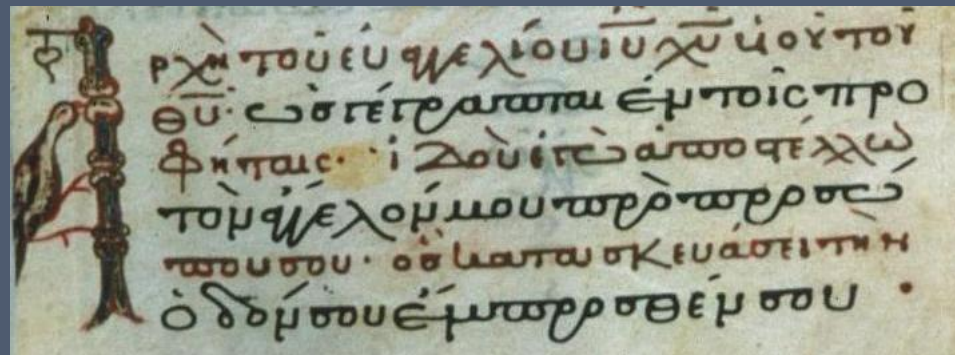 Ἀρχὴ τοῦ εὐαγγελίου ι̅υ̅ χ̅υ̅ υἱοῦ τοῦ
θ̅υ̅· ὡς γέγραπται ἐν τοῖς προ
φήταις· ἰδοὺ ἐγὼ ἀποστέλλω
τὸν ἄγγελόν μου πρὸ προσώ
που σου· ὃς κατασκευάσει τὴν
ὁδόν σου ἔμπροσθέν σου·